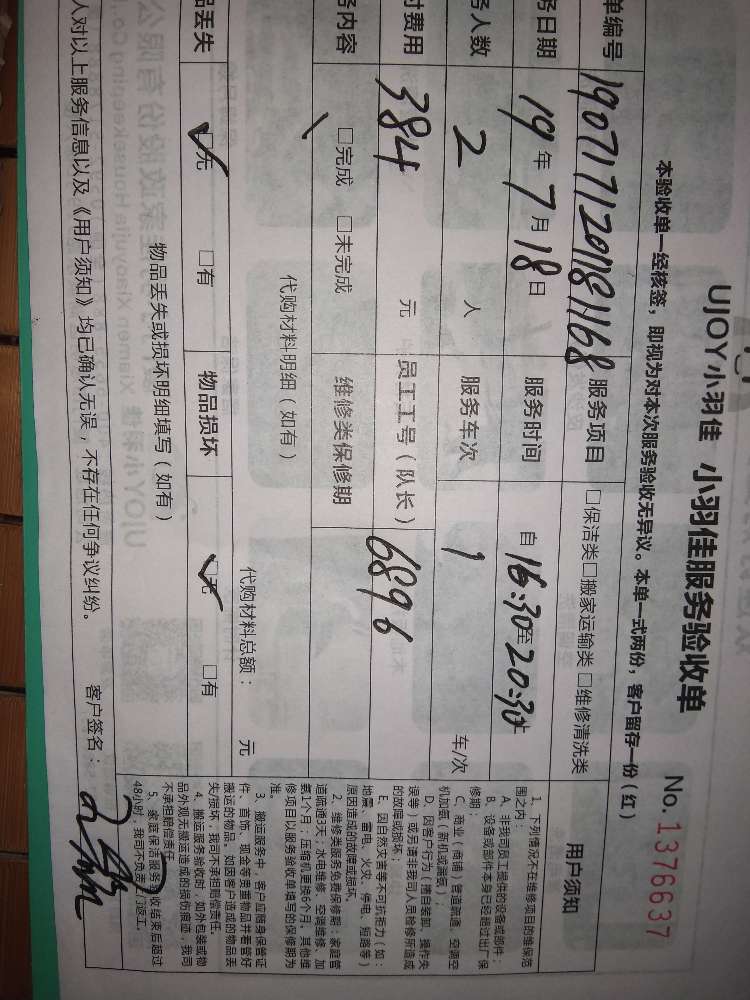 UJOY小羽佳 小羽佳服务验收单
No. 1376637
本验收单一经核签，即视为对本次服务验收无异议。本单一式两份，客户留存一份（红）
单编号 1907171201181168 服务项目 □保洁类□搬家运输类 □维修清洗类
日期 19年7月18日 服务时间 自16:30至20:30止
人数 2 人 服务车次 1 车/次
费用 384 元 员工工号（队长） 6896
内容 □完成 □未完成 维修类保修期
代购材料明细（如有） 代购材料总额： 元
丢失 □无 □有 物品损坏 □无 □有
物品丢失或损坏明细填写（如有）
人对以上服务信息以及《用户须知》均已确认无误，不存在任何争议纠纷。 客户签名：
用户须知
1、下列情况不在维修项目的维保范
围之内：
A、非我司员工提供的设备或部件；
B、设备或部件本身已经超过出厂保
修期；
C、商业（商博）管道疏通、空调空
机加氨（新机或漏氨）；
D、因客户行为（擅自装卸、操作失
误等）或另请非我司人员检修所造成
的故障或损坏；
E、因自然灾害等不可抗拒力（如：
地震、雷电、火灾、停电、短路等）
原因造成的故障或损坏。
2、维修类服务免费保修期：家庭管
道疏通3天；水电维修、空调维修、加
氨1个月；压缩机更换6个月，其他维
修项目以服务验收单填写的保修期为
准。
3、搬运服务中，客户应随身保管证
件、首饰、现金等贵重物品并看管好
搬运的物品，如因客户造成的物品丢
失/损坏，我司不承担赔偿责任。
4、搬运服务验收时，如外包装或物
品外观无搬运造成的损伤痕迹，我司
不承担赔偿责任。
5、家庭保洁服务验收结束后超过
48小时，我司不负责上门返工。